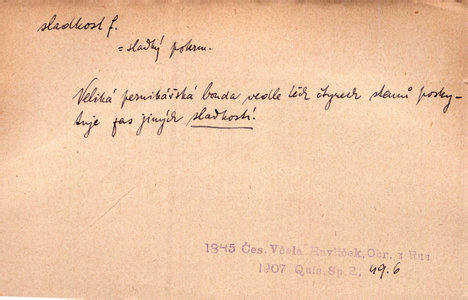 sladkost f.
= sladký pokrm.
Veliká pernikářská bouda vedle těch čtyrech stanů posky-
tuje zas jiných sladkostí!
1845 Čes. Včela Havlíček, Obr. z Rus
1907 Quis, Sp. 2, 49.6